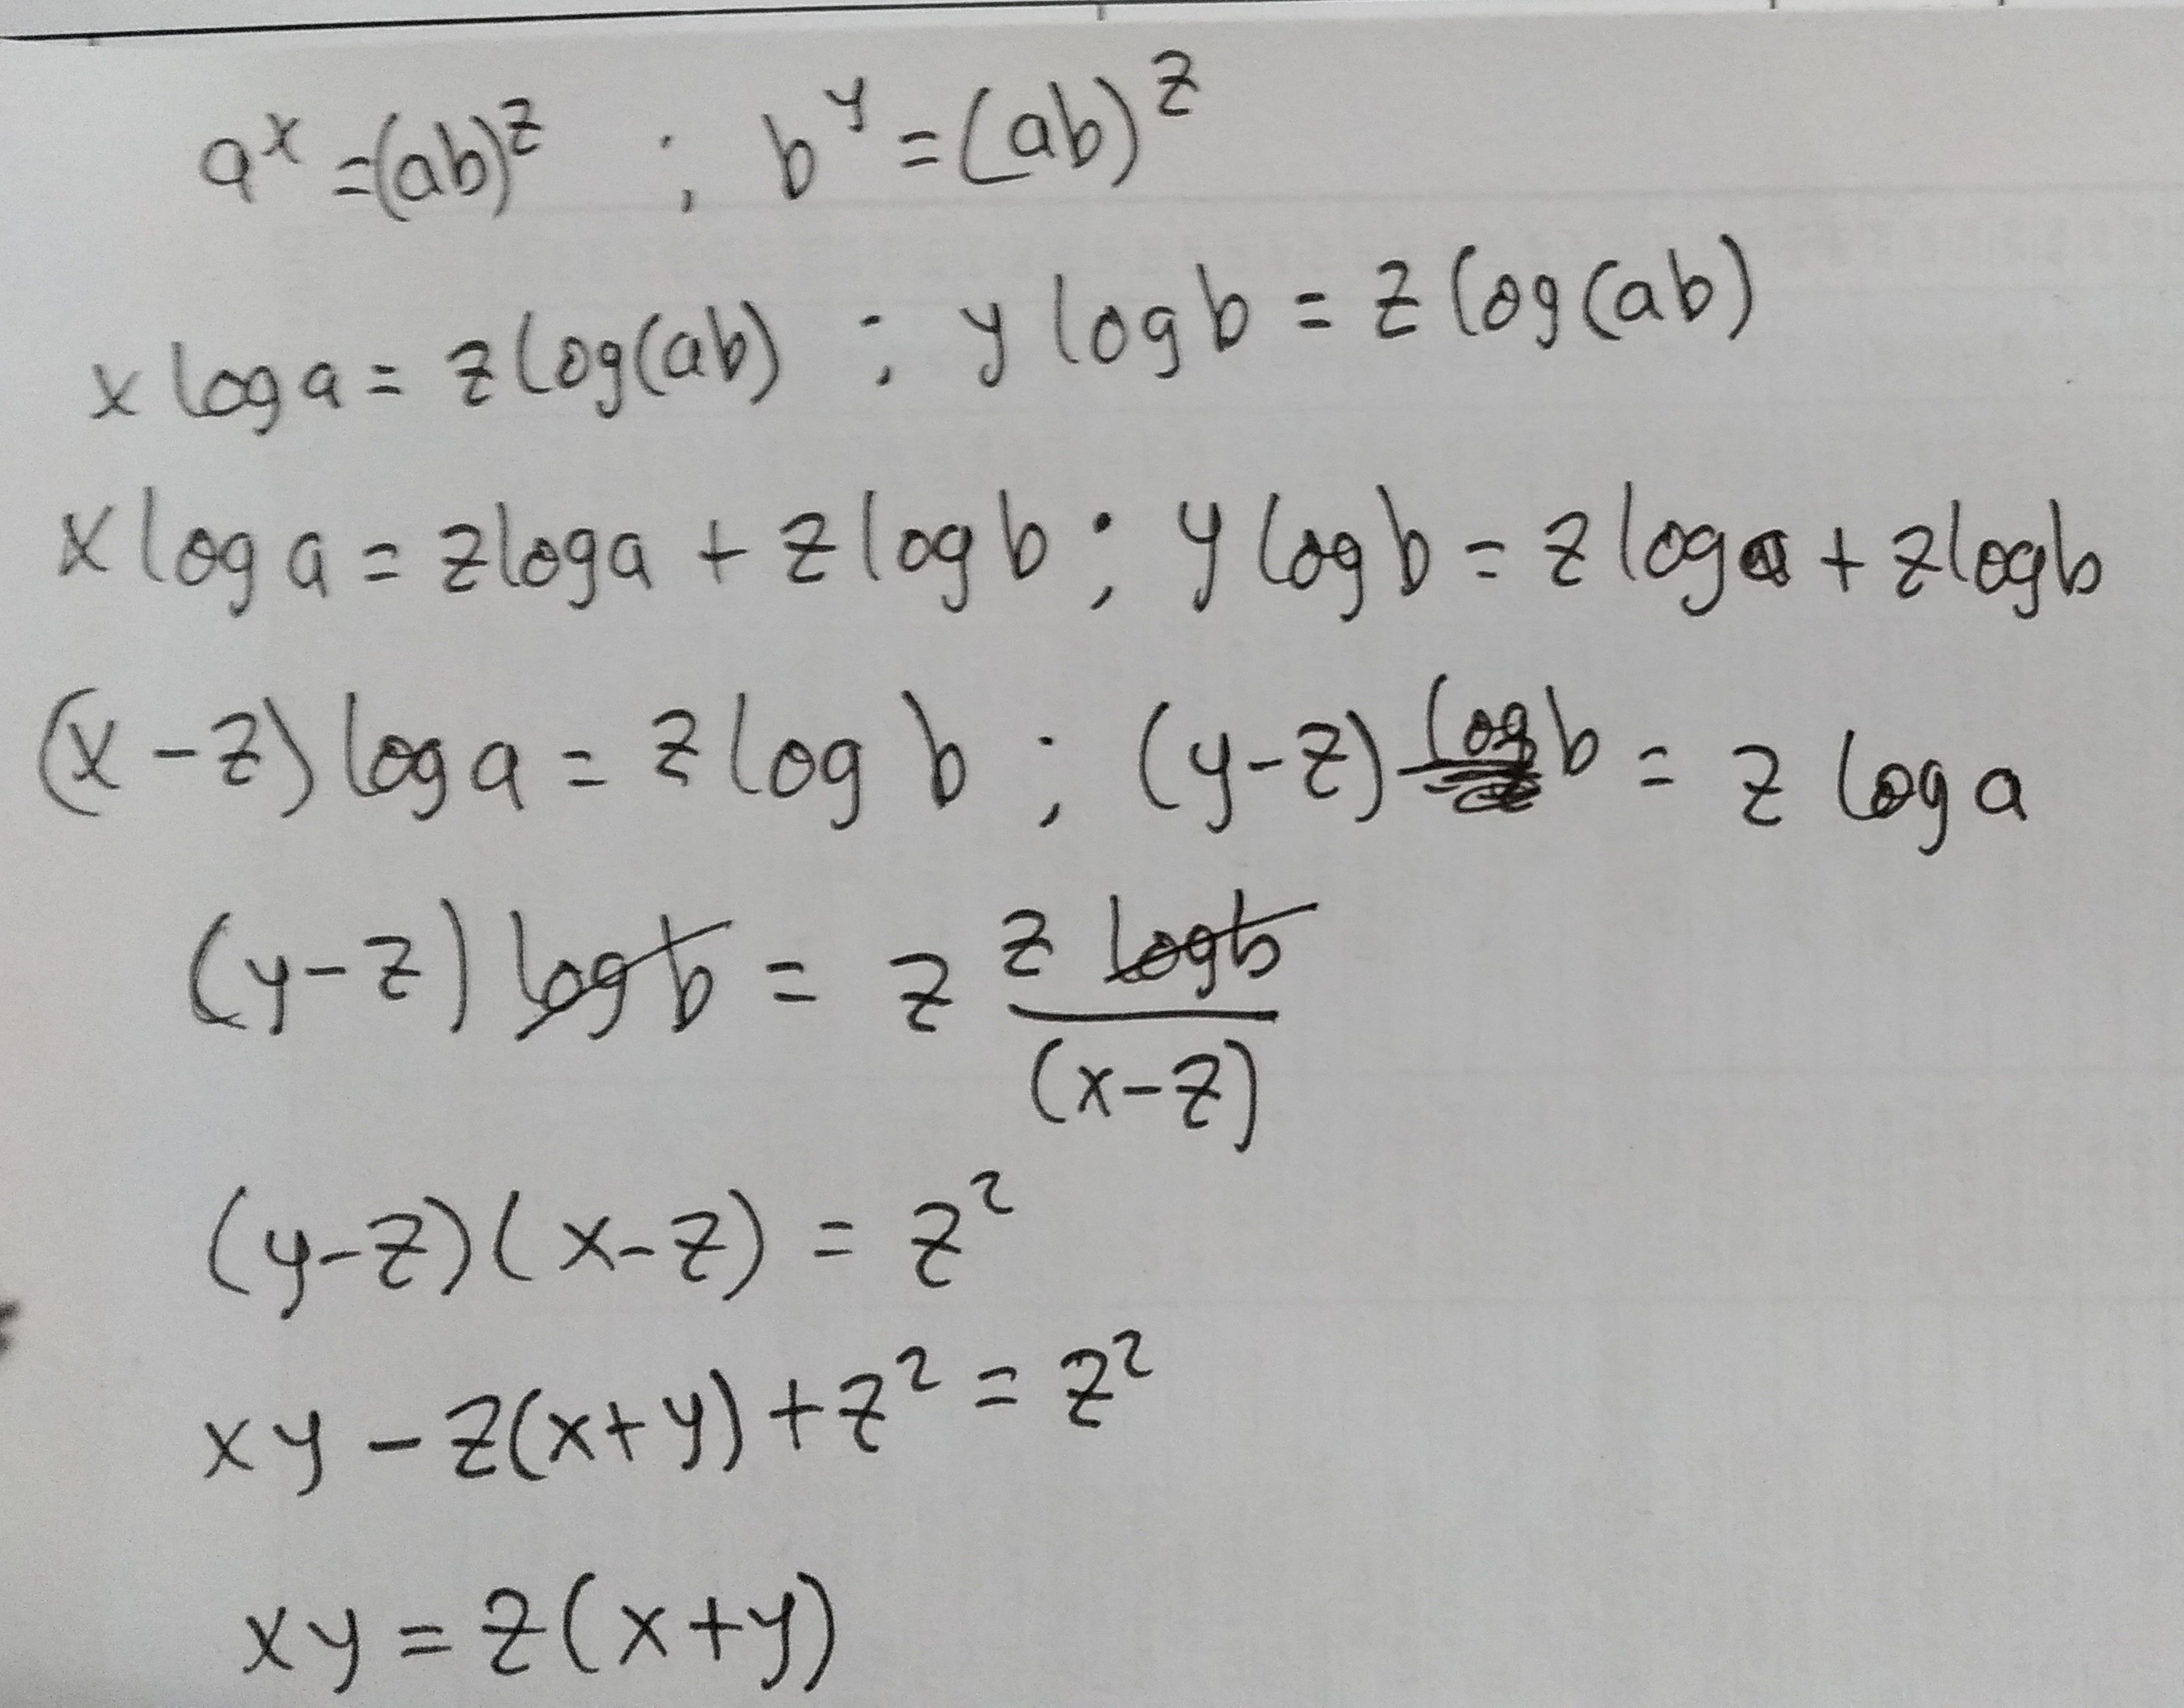 a^x = (ab)^z ; b^y = (ab)^z
x log a = z log(ab) ; y log b = z log(ab)
x log a = z log a + z log b ; y log b = z log a + z log b
(x - z) log a = z log b ; (y - z) log b = z log a
(y - z) log b = z \frac{z log b}{(x - z)}
(y - z)(x - z) = z^2
xy - z(x + y) + z^2 = z^2
xy = z(x + y)